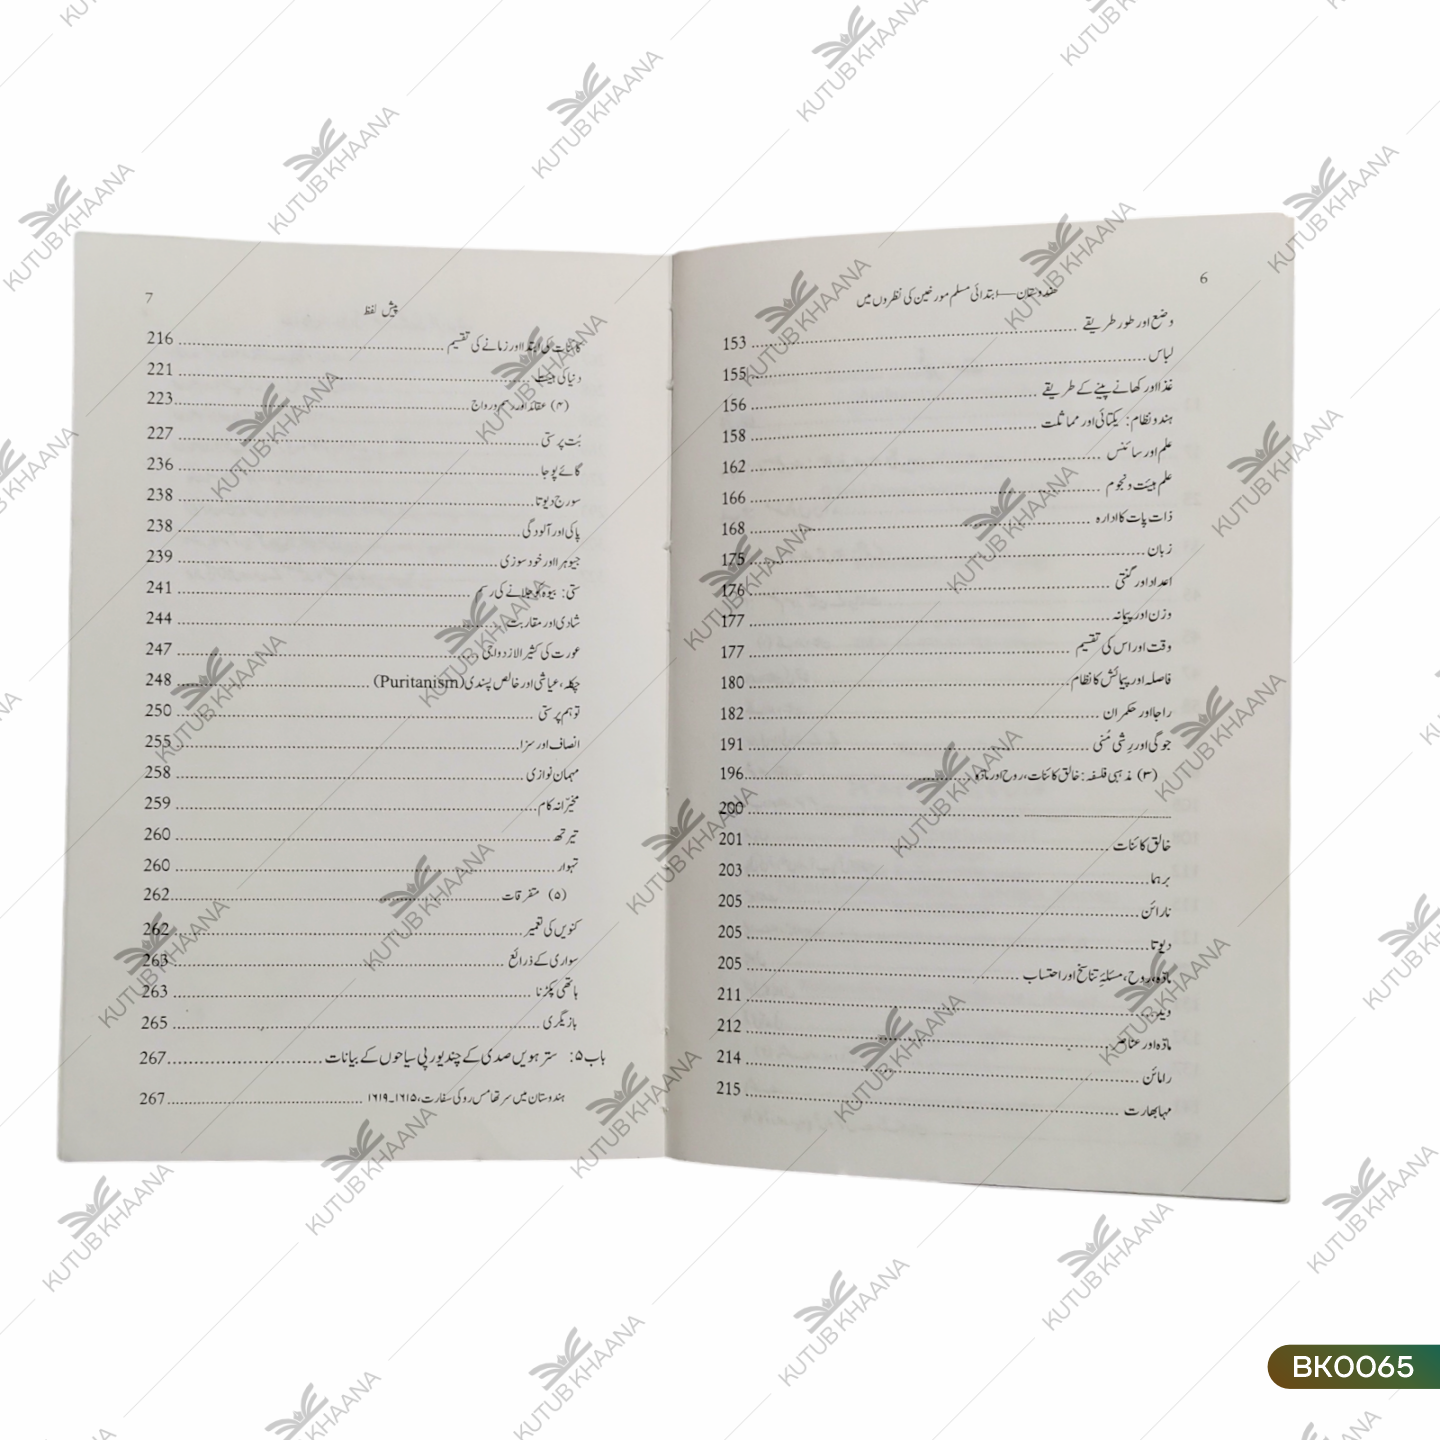 6
ھندوستان—ابتدائی مسلم مورخین کی نظروں میں
وضع اور طور طریقے 153
لباس 155
غذا اور کھانے پینے کے طریقے 156
ہندو نظام: یکتائی اور مماثلت 158
علم اور سائنس 162
علم ہیئت و نجوم 166
ذات پات کا ادارہ 168
زبان 175
اعداد اور گنتی 176
وزن اور پیمانہ 177
وقت اور اس کی تقسیم 177
فاصلہ اور پیمائش کا نظام 180
راجا اور حکمران 182
جوگی اور رشی مُنی 191
(۳) مذہبی فلسفہ: خالق کائنات، روح اور مادّہ 196
200
خالق کائنات 201
برہما 203
نارائن 205
دیوتا 205
مادّہ، روح، مسئلۂ تناسخ اور احتساب 205
وید 211
مادّہ اور عناصر 212
رامائن 214
مہابھارت 215
7
پیش لفظ
کائنات کی ابتدا اور زمانے کی تقسیم 216
دنیا کی ہیئت 221
(۴) عقائد اور رسم و رواج 223
بُت پرستی 227
گائے پوجا 236
سورج دیوتا 238
پاکی اور آلودگی 238
جیوہرا اور خودسوزی 239
ستی: بیوہ کو جلانے کی رسم 241
شادی اور مقاربت 244
عورت کی کثیر الازدواجی 247
چکلہ، عیاشی اور خالص پسندی (Puritanism) 248
توہم پرستی 250
انصاف اور سزا 255
مہمان نوازی 258
مخیّرانہ کام 259
تیرتھ 260
تہوار 260
(۵) متفرقات 262
کنویں کی تعمیر 262
سواری کے ذرائع 263
ہاتھی پکڑنا 263
بازیگری 265
باب ۵: سترھویں صدی کے چند یورپی سیاحوں کے بیانات 267
ہندوستان میں سر تھامس رو کی سفارت، ۱۶۱۵۔۱۶۱۹ 267
KUTUB KHAANA
BK0065